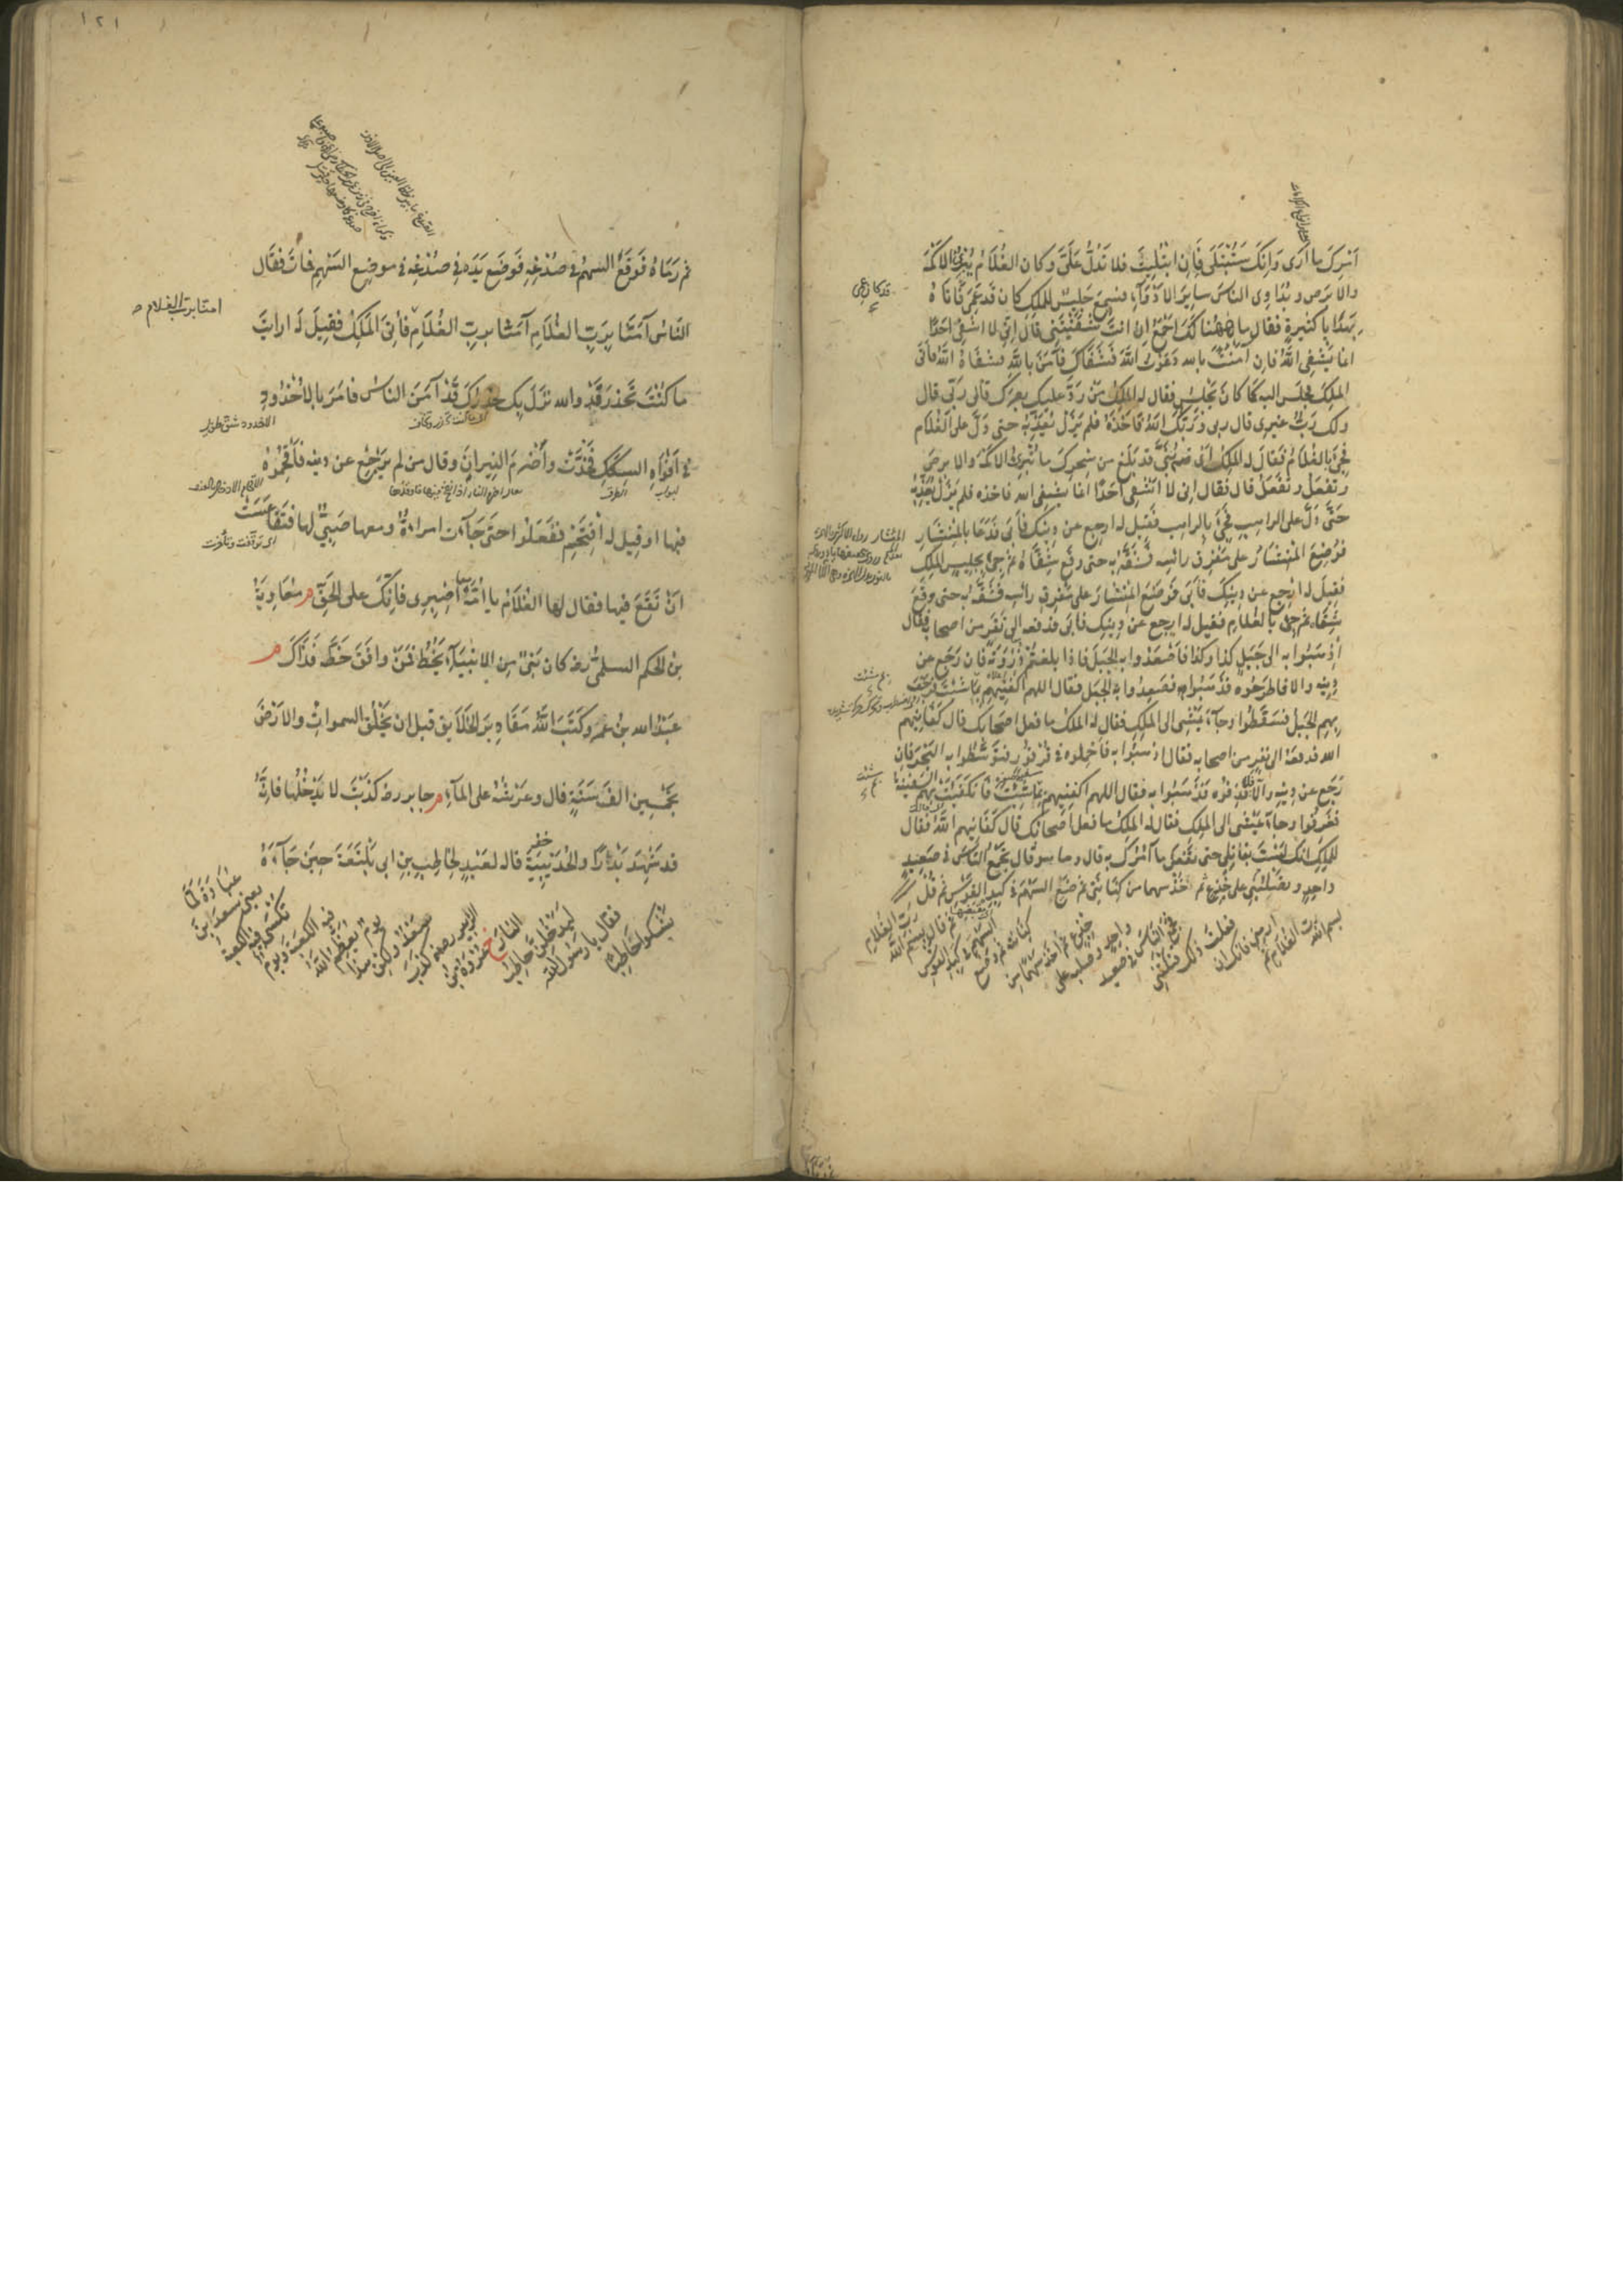 اَمْرِكَ ما اَرَى وَاِنَّكَ سَتُبْتَلَى فَاِنِ ابْتُلِيتَ فلا تَدُلَّ عَلَىَّ وكان الغُلَامُ يُبْرِئُ الاَكْمَهَ
والاَبْرَصَ ويُدَاوِى الناسَ سايِرَ الاَدْوَآءِ فسَمِعَ جَلِيسٌ للمَلِكِ كان قد عَمِىَ فَاَتَاهُ
بِهَدَايا كثيرةٍ فقال ما هٰهُنا لَكَ اَجْمَعُ اِنْ انتَ شَفَيْتَنِى قال اِنّى لا اَشْفِى اَحَدًا
انما يَشْفِى اللهُ فاِن آمَنْتَ بالله دَعَوْتُ اللهَ فَشَفَاكَ فَآمَنَ باللهِ فشَفَاهُ اللهُ فاَتَى
المَلِكَ فجَلَسَ اليه كَمَا كان يَجْلِسُ فقال له المَلِكُ مَنْ رَدَّ عليك بصَرَكَ قال رَبّى قال
ولك رَبٌّ غيرى قال ربى ورَبُّكَ اللهُ فَاَخَذَهُ فلم يَزَلْ يُعَذِّبُه حتى دَلَّ على الغُلَام
فجِئَ بالغُلَامِ فقال له المَلِكُ اَىْ بُنَىَّ قد بَلَغَ من سِحْرِكَ ما تُبْرِئُ الاَكْمَهَ والابرصَ
وتَفْعَلُ وتَفْعَلُ قال فقال اِنى لا اَشْفِى اَحَدًا انما يشفِى الله فاخذه فلم يَزَلْ يُعَذِّبُه
حَتَّى دَلَّ على الراهِبِ فجِئَ بالراهب فقِيل له ارجِع عن دِينِكَ فاَبَى فَدَعَا بالمِنْشَارِ
فوُضِعَ المِنْشَارُ على مَفْرِقِ رَاْسِه فَشَقَّه به حتى وقَع شِقَّاهُ ثم جِئَ بجَلِيسِ المَلِكِ
فقِيلَ له ارْجِع عن دِينِكَ فاَبَى فوَضَعَ المِنْشَارَ على مَفْرِقِ راسِه فشَقَّه به حتى وقَعَ
شِقَّاه ثم جِئَ بالغُلَامِ فقيل له ارجع عن دِينِكَ فاَبَى فدفعه الى نَفَرٍ من اصحابه فقال
اِذْهَبُوا به الى جَبَلِ كذا وكذا فاصْعَدُوا به الجَبَلَ فاذا بلغتُم ذُرْوَتَه فان رَجَع عن
دِينِه والا فاطرَحُوه فذَهَبُوا به فصَعِدُوا به الجَبَل فقال اللهم اكْفِنِيهِم بما شئتَ فرَجَفَ
بهِم الجَبَلُ فسَقَطُوا وجآءَ يَمْشِى الى المَلِكِ فقال له المَلِكُ ما فَعل اصحابُك قال كَفَانِيهِم
الله فدفعَهُ الى نفَرٍ من اصحابه فقال اذهَبُوا به فاحْمِلوه فى قُرْقُورٍ فتَوَسَّطُوا به البَحْرَ فاِن
رَجَع عن دِينِه والّا فاقْذِفُوه فذَهَبُوا به فقال اللهم اكفِنِيهِم بما شِئْتَ فانكَفَأَتْ بهم السَّفِينةُ
فغَرِقُوا وجآءَ يَمْشِى الى المَلِكِ فقال له المَلِكُ ما فعل اَصْحابُك قال كَفَانِيهِم اللهُ فقال
للمَلِكِ اِنّك لَسْتَ بقاتِلى حتى تَفْعَلَ ما آمُرُكَ به قال وما هو قال تَجْمَعُ النَّاسَ فى صَعِيدٍ
واحِدٍ وتَصْلُبُنِى على جِذْعٍ ثم خُذْ سهما من كِنَانَتِى ثم ضَعِ السَّهْمَ فى كَبِدِ القَوْسِ ثم قُلْ
بسم الله رَبِّ الغُلَامِ ثم ارمِنِى فانك اِن فعَلْتَ ذلك قتَلْتَنِى فجمَعَ النَّاسَ فى صَعِيدٍ واحِدٍ وصلبه على جِذْعٍ ثم اَخَذَ سَهْمًا من كِنَانَتِه ثم وَضَعَ السَّهْمَ فى كَبِدِ القَوْسِ ثم قال بِسْمِ الله رَبِّ الغُلَامِ
ثم رَمَاهُ فَوقَعَ السهمُ فى صُدْغِهِ فوَضَعَ يَدَه فى صُدْغِه فى موضِعِ السَّهْمِ فمَاتَ فقال
النَّاسُ آمَنَّا بِرَبِّ الغُلَامِ آمَنَّا بربِّ الغُلَامِ فأُتِىَ المَلِكُ فقِيلَ لَه ارايْتَ
امنا برب الغلام
ما كُنْتَ تَحْذَرُ قَدْ والله نزَلَ بِكَ حذرُكَ قَدْ آمَنَ الناسُ فامَرَ بالاُخْدُودِ
الاخدود شق طويل
فى اَفْوَاهِ السِكَكِ فخُدَّتْ وأَضْرَمَ النِيرانَ وقال من لم يَرْجِعْ عن دينه فأَقْحِمُوْه
ابواب الطرق
فيها او قِيل له اقْتَحِمْ فَفَعَلُوا حتى جَآءَت امراءةٌ ومعها صَبِىٌّ لها فتَقَاعَسَتْ
اى توقفت وتأخرت
اَنْ تَقَعَ فيها فقال لها الغُلَامُ يا اُمَّهْ اصْبِرِى فاِنَّكِ على الحَقِّ م مُعَاوِيَةُ
بنُ الحكم السلمىُّ رضه كان نَبِىٌّ مِن الانْبيَآءِ يَخُطُّ فمَنْ وافَقَ خطَّه فَذَاكَ م
عَبْدُ الله بنُ عمَرو كَتَبَ اللهُ مَقَادِيرَ الخَلَايِقِ قبل ان يَخْلُقَ السمواتِ والاَرْضَ
بخَمْسِينَ الفَ سَنَةٍ قال وعَرْشُهُ على المآءِ م جابر رضه كذَبْتَ لا يَدْخُلُها فاِنَّهُ
قد شَهِدَ بَدْرًا والحُدَيْبِيَةَ قاله لعَبْدٍ لحَاطِبِ بنِ ابى بَلْتَعَةَ حِينَ جَآءَهُ
يَشْكُوا حَاطِبًا فقال يا رَسُولَ الله لَيَدْخُلَنَّ حاطِبٌ النارَ خ عُرْوَةُ بنُ الزبير رضه كذَبَ سَعْدٌ ولكن هذا يومٌ يُعَظِّمُ اللهُ فيه الكَعْبَةَ ويومٌ تُكْسَى فيه الكَعْبَةُ يعنى سعد ابنَ عُبَادَةَ لَمَّا